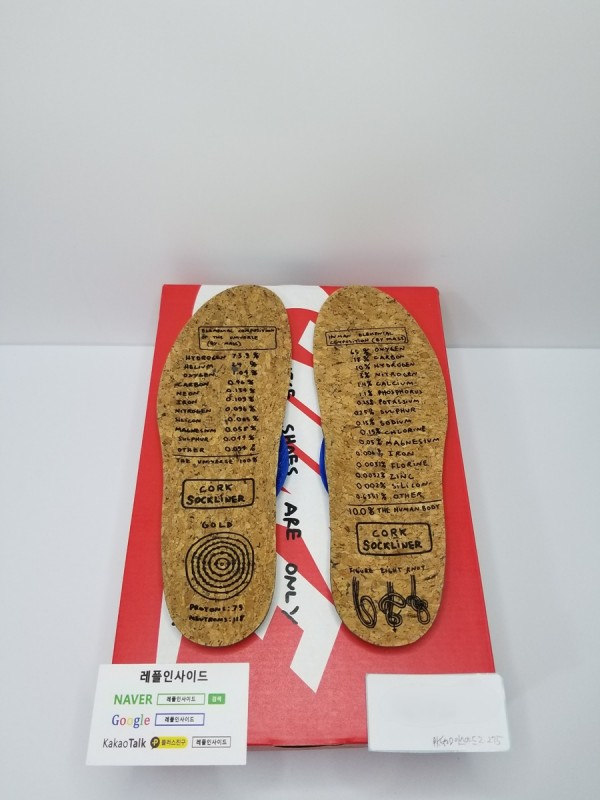 ELEMENTAL COMPOSITION
OF THE UNIVERSE
(BY MASS)
HYDROGEN 73.9 %
HELIUM %
OXYGEN 1.04 %
CARBON 0.46 %
NEON 0.134 %
IRON 0.109 %
NITROGEN 0.096 %
SILICON
MAGNESIUM 0.058 %
SULPHUR 0.044 %
OTHER
THE UNIVERSE 100%
CORK
SOCKLINER
GOLD
PROTONS: 79
NEUTRONS: 118
HUMAN ELEMENTAL
COMPOSITION (BY MASS)
65 % OXYGEN
18 % CARBON
10 % HYDROGEN
3 % NITROGEN
1.4 % CALCIUM
1.1 % PHOSPHORUS
0.25 % POTASSIUM
0.25 % SULPHUR
0.15 % SODIUM
0.15 % CHLORINE
0.05 % MAGNESIUM
0.006 % IRON
0.0037% FLORINE
0.0032% ZINC
0.002 % SILICON
OTHER
100% THE HUMAN BODY
CORK
SOCKLINER
FIGURE EIGHT KNOT
SHOES ARE ONLY
레플인사이드
NAVER 레플인사이드 검색
Google 레플인사이드
KakaoTalk 플러스친구 레플인사이드
275